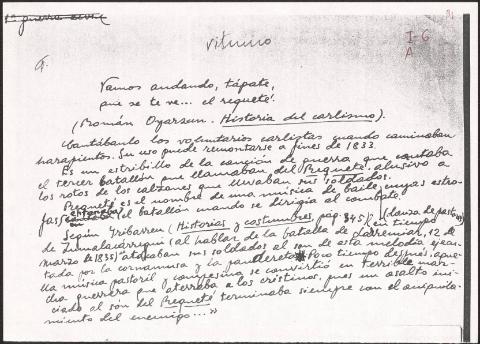 1ª guerra civil
vitrino
91
I 6
A
G.
Vamos andando, tápate,
que se te ve... el requeté.
(Román Oyarzun. Historia del carlismo).
Cantábanlo los voluntarios carlistas quando caminaban
harapientos. Su uso puede remontarse a fines de 1833.
Es un estribillo de la canción de guerra que cantaba
el tercer batallón que llamaban del Requeté, alusivo a
los rotos de los calzones que llevaban sus soldados.
Requeté es el nombre de una música de baile, cuyas estro-
fas entonaba el batallón cuando se dirigía al combate.
Según Iribarren (Historias y costumbres, pag. 345), (danza de pastores) en tiempo
de Zumalacárregui (al hablar de la batalla de Larremiar, 12 de
marzo de 1835) atacaban sus soldados al son de esta melodía ejecu-
tada por la cornamusa y la pandereta. Poco tiempo después, aque-
lla música pastoril y campesina se convirtió en terrible mar-
cha guerrera que aterraba a los cristinos, pues un asalto ini-
ciado al són del Requeté terminaba siempre con el aniquila-
miento del enemigo...»